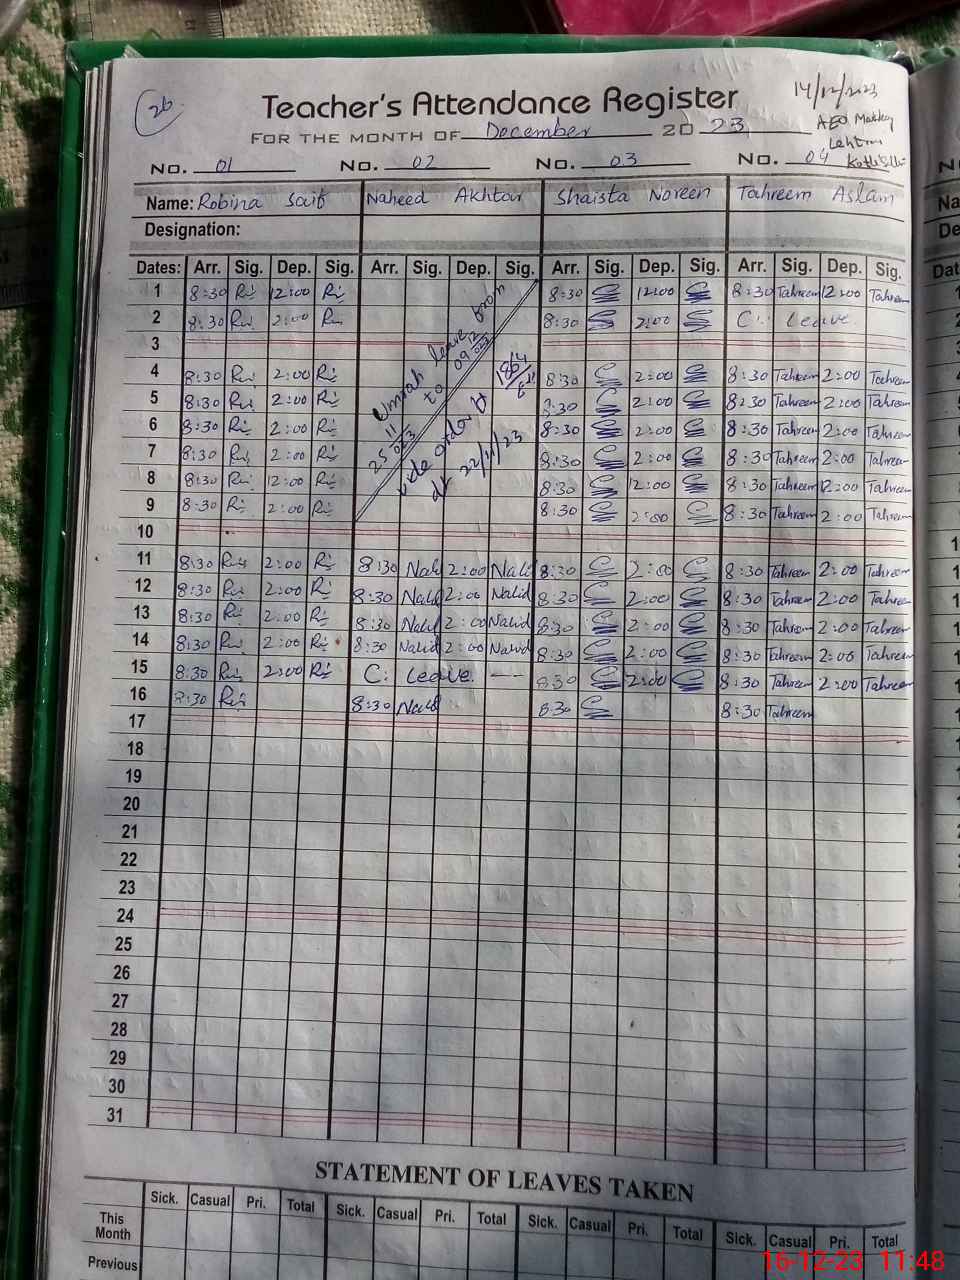 26
Teacher's Attendance Register
14/12/2023
FOR THE MONTH OF December 2023
AEO
No. 01 No. 02 No. 03 No. 04
Name: Robina Saif Naheed Akhtar Shaista Noreen Tahreem Aslam
Designation:
Dates: Arr. Sig. Dep. Sig. Arr. Sig. Dep. Sig. Arr. Sig. Dep. Sig. Arr. Sig. Dep. Sig.
1 8:30 12:00 8:30 12:00 8:30 Tahreem 12:00 Tahreem
2 8:30 2:00 8:30 2:00 C. Leave
3
4 8:30 2:00 8:30 2:00 8:30 Tahreem 2:00 Tahreem
5 8:30 2:00 8:30 2:00 8:30 Tahreem 2:00 Tahreem
6 8:30 2:00 8:30 2:00 8:30 Tahreem 2:00 Tahreem
7 8:30 2:00 8:30 2:00 8:30 Tahreem 2:00 Tahreem
8 8:30 12:00 8:30 12:00 8:30 Tahreem 12:00 Tahreem
9 8:30 2:00 8:30 2:00 8:30 Tahreem 2:00 Tahreem
Umrah leave from
25 11 to 09 12
vide order #
dt 22/11/23
10
11 8:30 2:00 8:30 2:00 8:30 2:00 8:30 Tahreem 2:00 Tahreem
12 8:30 2:00 8:30 2:00 8:30 2:00 8:30 Tahreem 2:00 Tahreem
13 8:30 2:00 8:30 2:00 8:30 2:00 8:30 Tahreem 2:00 Tahreem
14 8:30 2:00 8:30 2:00 8:30 2:00 8:30 Tahreem 2:00 Tahreem
15 8:30 2:00 C. Leave 8:30 2:00 8:30 Tahreem 2:00 Tahreem
16 8:30 8:30 8:30 8:30 Tahreem
17
18
19
20
21
22
23
24
25
26
27
28
29
30
31
STATEMENT OF LEAVES TAKEN
Sick. Casual Pri. Total Sick. Casual Pri. Total Sick. Casual Pri. Total Sick. Casual Pri. Total
This Month
Previous
16-12-23 11:48